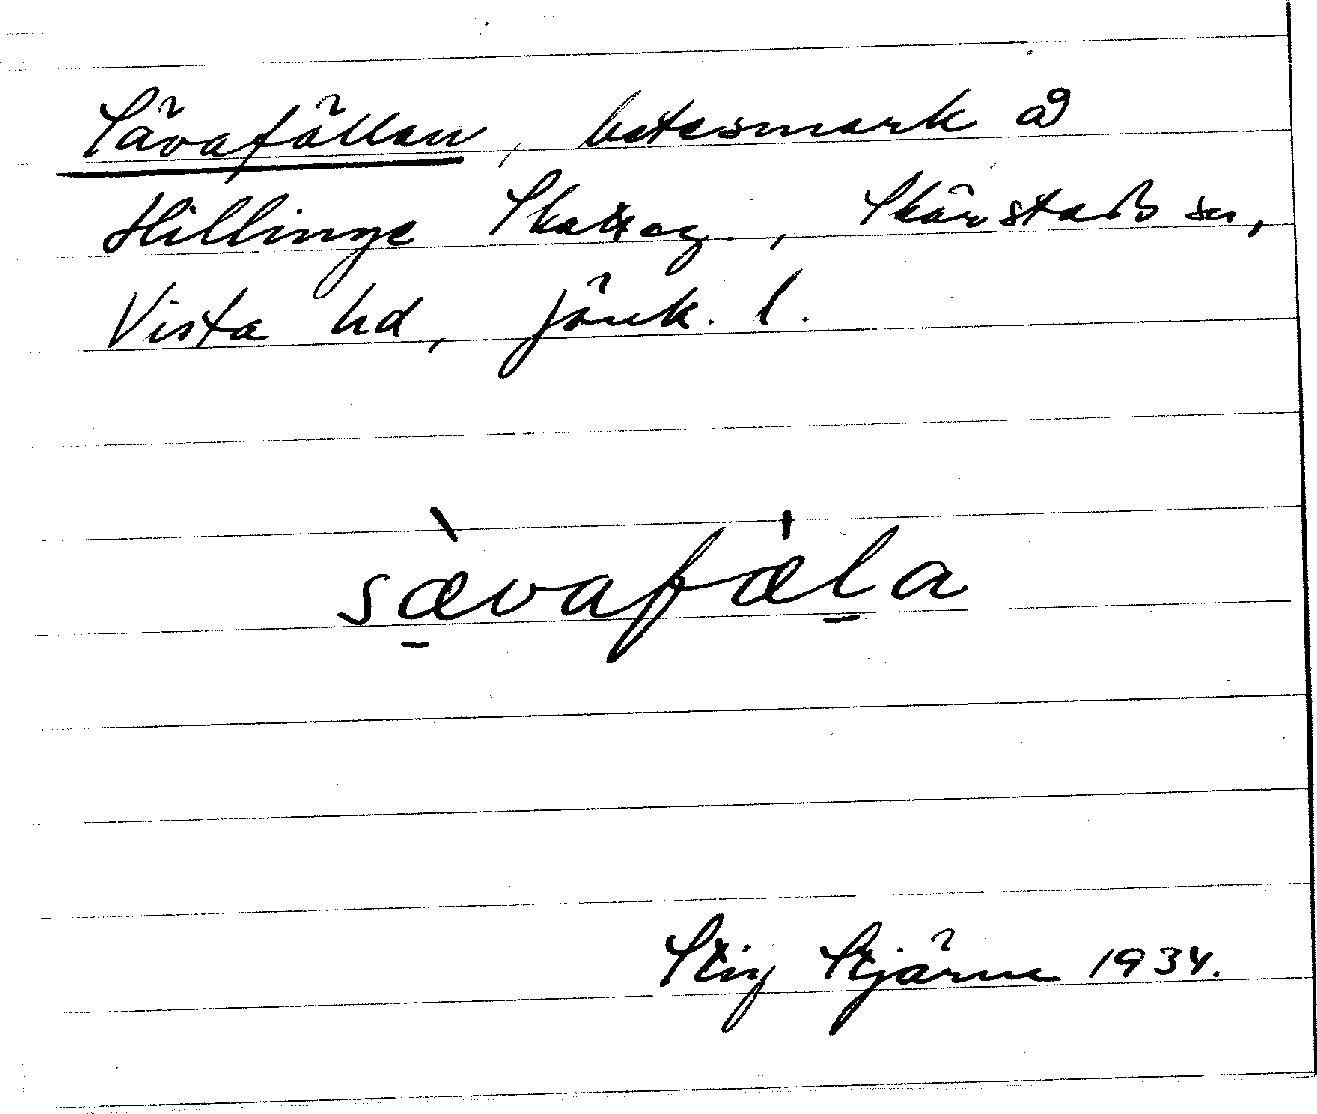 Sävafällan, betesmark å
Hillinge Skatteg., Skärstads sn,
Vista hd, Jönk. l.
sævafæla
Stig Stjärne 1934.